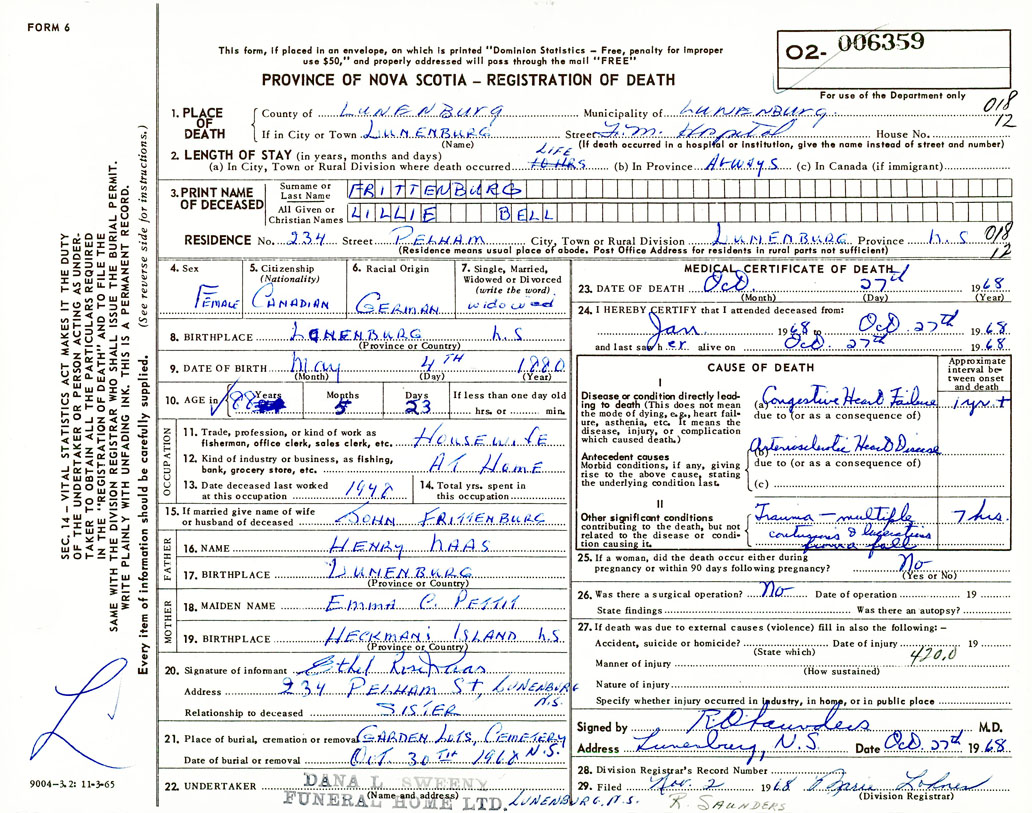 FORM 6
This form, if placed in an envelope, on which is printed "Dominion Statistics – Free, penalty for improper
use $50," and properly addressed will pass through the mail "FREE"
PROVINCE OF NOVA SCOTIA – REGISTRATION OF DEATH
O2- 006359
For use of the Department only
018
12
1. PLACE OF DEATH
County of LUNENBURG Municipality of LUNENBURG
If in City or Town LUNENBURG Street F.M. Hospital House No.
(Name) (If death occurred in a hospital or institution, give the name instead of street and number)
2. LENGTH OF STAY (in years, months and days)
LIFE
(a) In City, Town or Rural Division where death occurred 10 HRS (b) In Province ALWAYS (c) In Canada (if immigrant)
3. PRINT NAME OF DECEASED
Surname or Last Name FRITTENBURG
All Given or Christian Names LILLIE BELL
RESIDENCE No. 234 Street PELHAM City, Town or Rural Division LUNENBURG Province N.S 018
(Residence means usual place of abode. Post Office Address for residents in rural parts not sufficient) 12
4. Sex FEMALE
5. Citizenship (Nationality) CANADIAN
6. Racial Origin GERMAN
7. Single, Married, Widowed or Divorced (write the word) widowed
8. BIRTHPLACE LUNENBURG N.S
(Province or Country)
9. DATE OF BIRTH May 4TH 1880
(Month) (Day) (Year)
10. AGE in 88 Years Months 5 Days 23 If less than one day old hrs. or min.
OCCUPATION
11. Trade, profession, or kind of work as fisherman, office clerk, sales clerk, etc. HOUSEWIFE
12. Kind of industry or business, as fishing, bank, grocery store, etc. AT Home
13. Date deceased last worked at this occupation 1948
14. Total yrs. spent in this occupation
15. If married give name of wife or husband of deceased JOHN FRITTENBURG
FATHER
16. NAME HENRY HAAS
17. BIRTHPLACE LUNENBURG
(Province or Country)
MOTHER
18. MAIDEN NAME EMMA C. PETTIT
19. BIRTHPLACE HECKMANS ISLAND N.S
(Province or Country)
20. Signature of informant Ethel Haas
Address 234 PELHAM ST, LUNENBURG N.S.
Relationship to deceased SISTER
21. Place of burial, cremation or removal GARDEN LOTS, CEMETERY
Date of burial or removal OCT. 30TH 1968 N.S.
22. UNDERTAKER DANA L. SWEENY
(Name and address)
FUNERAL HOME LTD. LUNENBURG, N.S.
MEDICAL CERTIFICATE OF DEATH
23. DATE OF DEATH Oct. 27th 1968
(Month) (Day) (Year)
24. I HEREBY CERTIFY that I attended deceased from:
Jan. 1968 to Oct. 27th 1968
and last saw her alive on Oct. 27th 1968
CAUSE OF DEATH
Approximate interval between onset and death
I
Disease or condition directly leading to death (This does not mean the mode of dying, e.g., heart failure, asthenia, etc. It means the disease, injury, or complication which caused death.)
(a) Congestive Heart Failure 1 yr. +
due to (or as a consequence of)
Antecedent causes
Morbid conditions, if any, giving rise to the above cause, stating the underlying condition last.
(b) Arteriosclerotic Heart Disease
due to (or as a consequence of)
(c)
II
Other significant conditions contributing to the death, but not related to the disease or condition causing it.
Trauma – multiple 7 hrs.
contusions & lacerations
from a fall
25. If a woman, did the death occur either during pregnancy or within 90 days following pregnancy? No
(Yes or No)
26. Was there a surgical operation? No Date of operation 19
State findings Was there an autopsy?
27. If death was due to external causes (violence) fill in also the following:–
Accident, suicide or homicide? Date of injury 19
(State which) 420.0
Manner of injury
(How sustained)
Nature of injury
Specify whether injury occurred in industry, in home, or in public place
Signed by R.O. Saunders M.D.
Address Lunenburg, N.S. Date Oct. 27th 1968
28. Division Registrar's Record Number
29. Filed Nov. 2 1968
(Division Registrar)
R. SAUNDERS
SEC. 14 – VITAL STATISTICS ACT MAKES IT THE DUTY
OF THE UNDERTAKER OR PERSON ACTING AS UNDER-
TAKER TO OBTAIN ALL THE PARTICULARS REQUIRED
IN THE "REGISTRATION OF DEATH" AND TO FILE THE
SAME WITH THE DIVISION REGISTRAR WHO SHALL ISSUE THE BURIAL PERMIT.
WRITE PLAINLY WITH UNFADING INK. THIS IS A PERMANENT RECORD.
Every item of information should be carefully supplied. (See reverse side for instructions.)
9004–3.2: 11-3-65